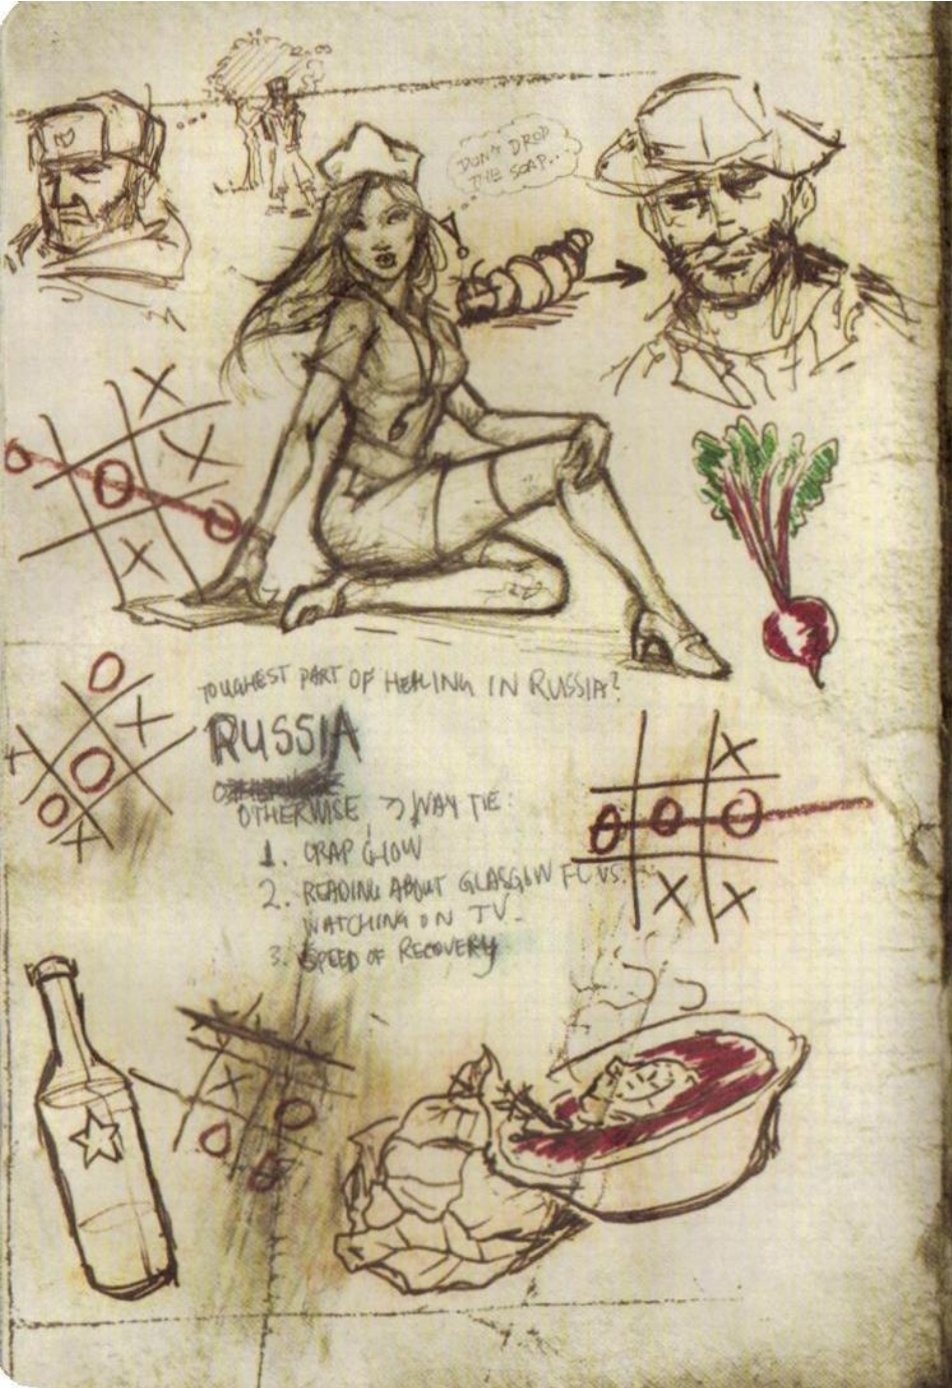 DON'T DROP
THE SOAP...
TOUGHEST PART OF HEALING IN RUSSIA?
RUSSIA
OTHERWISE 3 WAY TIE:
1. CRAP CHOW
2. READING ABOUT GLASGOW FC VS.
WATCHING ON TV.
3. SPEED OF RECOVERY